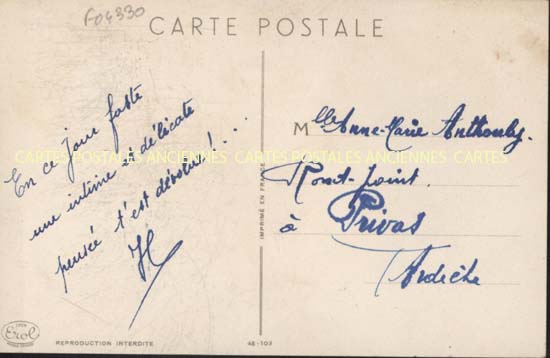 F04330
CARTE POSTALE
En ce jour faste
une intime et délicate
pensée t'est dévolue!...
H
Mlle Anne-Marie Anthouly.
Rond-Point.
à Privas
Ardèche
CARTES POSTALES ANCIENNES CARTES POSTALES ANCIENNES CARTES
IMPRIMÉ EN FRANCE
LYON
Erol
REPRODUCTION INTERDITE
48-103